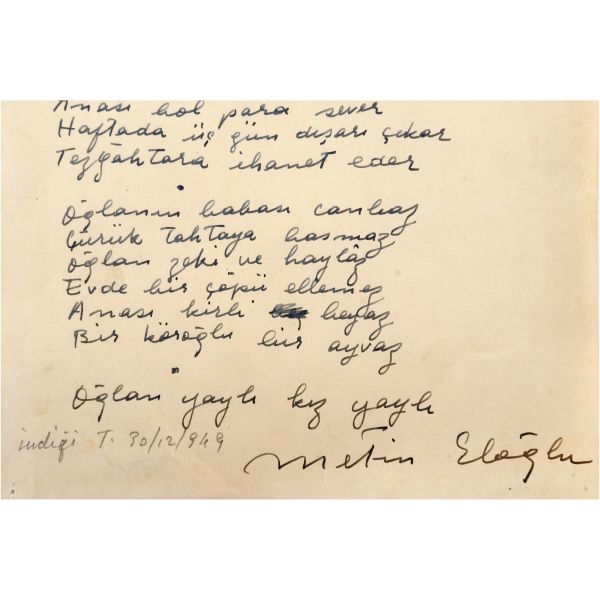 Anası bol para sever
Haftada üç gün dışarı çıkar
Tezgâhtara ihanet eder
Oğlanın babası canbaz
Çürük tahtaya basmaz
Oğlan zeki ve haylâz
Evde bir çöpü ellemez
Anası kirli beyaz
Bir köroğlu bir ayvaz
Oğlan yaylı kız yaylı
indiği T. 30/12/949
Metin Eloğlu